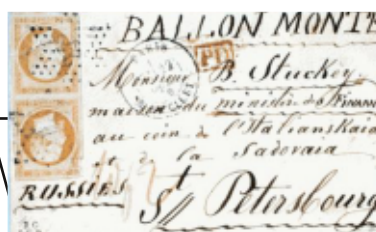 BALLON MONTE
PD
Monsieur B. Stuckey
maison du ministre des Finance
au coin de l'Italianskaia
et de la Sadovaia
RUSSIE
St Petersbourg